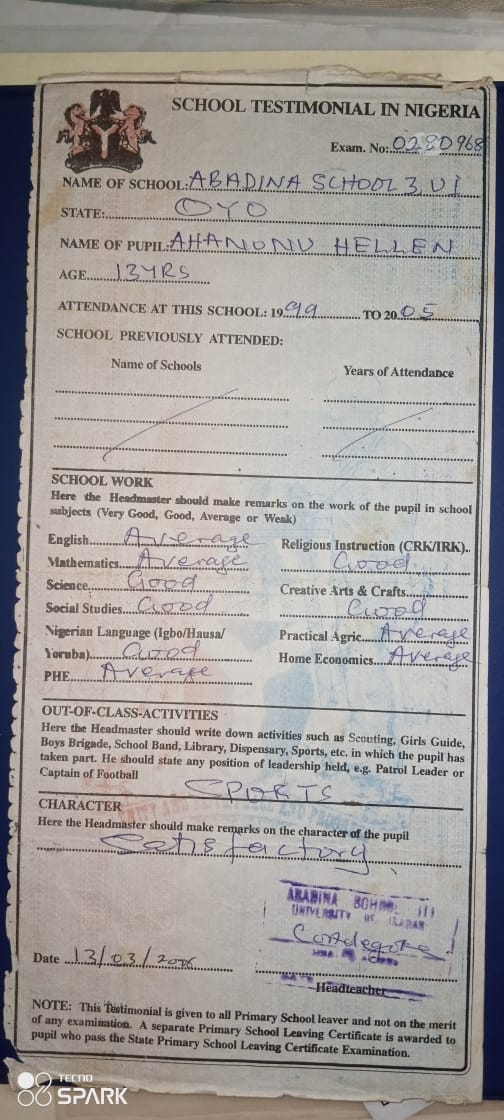 SCHOOL TESTIMONIAL IN NIGERIA
Exam. No: 0280968
NAME OF SCHOOL: ABADINA SCHOOL 3, UI
STATE: OYO
NAME OF PUPIL: AHANONU HELLEN
AGE 13YRS
ATTENDANCE AT THIS SCHOOL: 1999 TO 2005
SCHOOL PREVIOUSLY ATTENDED:
Name of Schools Years of Attendance
SCHOOL WORK
Here the Headmaster should make remarks on the work of the pupil in school
subjects (Very Good, Good, Average or Weak)
English Average Religious Instruction (CRK/IRK)..
Mathematics Average Good
Science Good Creative Arts & Crafts
Social Studies Good Good
Nigerian Language (Igbo/Hausa/ Practical Agric. Average
Yoruba) Good Home Economics Average
PHE Average
OUT-OF-CLASS-ACTIVITIES
Here the Headmaster should write down activities such as Scouting, Girls Guide,
Boys Brigade, School Band, Library, Dispensary, Sports, etc. in which the pupil has
taken part. He should state any position of leadership held, e.g. Patrol Leader or
Captain of Football
SPORTS
CHARACTER
Here the Headmaster should make remarks on the character of the pupil
Satisfactory
ABADINA SCHOOL III
UNIVERSITY OF IBADAN
Date 13/03/2006
Headteacher
NOTE: This Testimonial is given to all Primary School leaver and not on the merit
of any examination. A separate Primary School Leaving Certificate is awarded to
pupil who pass the State Primary School Leaving Certificate Examination.
TECNO
SPARK